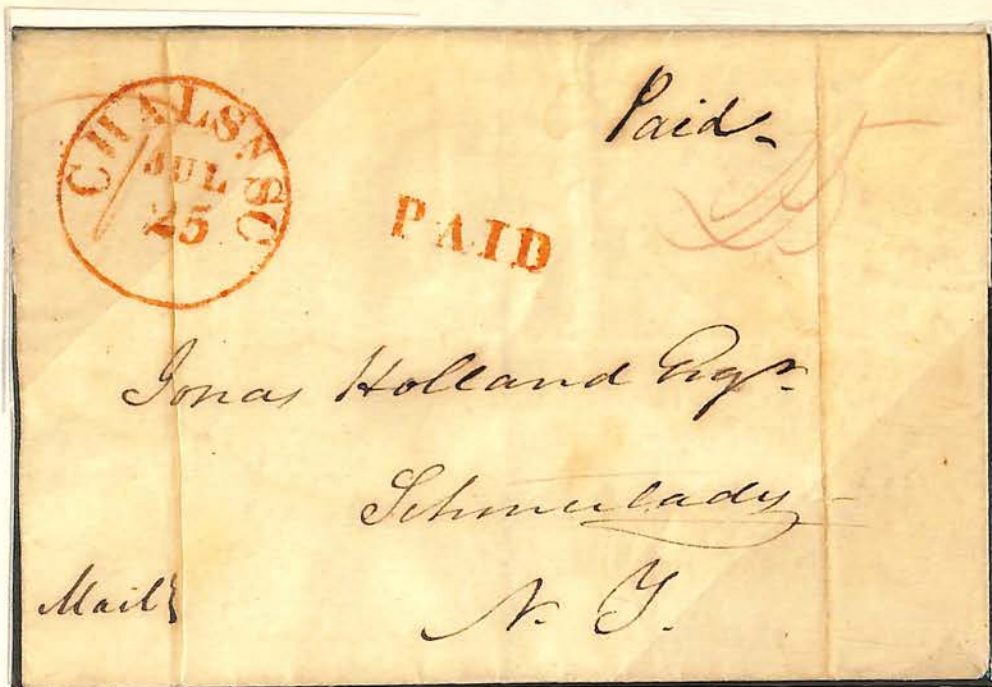 CHALSN SC
JUL
25
PAID
Paid
25
Jonas Holland Esqr.
Schenectady
N. Y.
Mail